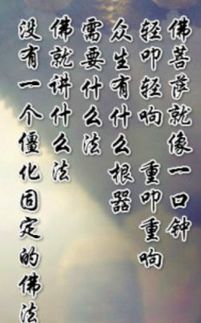 佛菩萨就像一口钟
轻叩轻响 重叩重响
众生有什么根器
需要什么法
佛就讲什么法
没有一个僵化固定的佛法